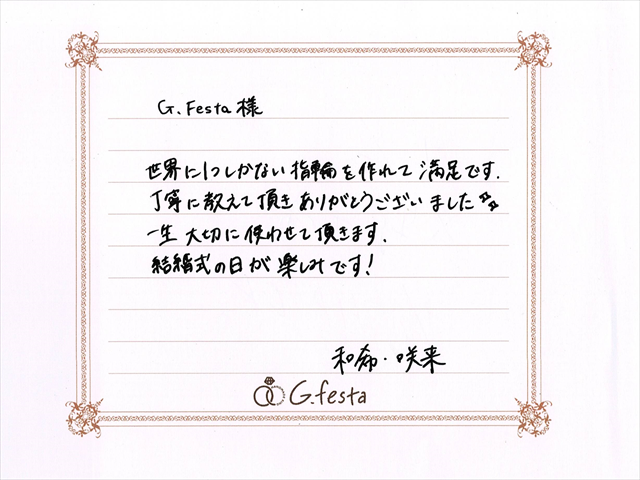 G.Festa様
世界に1つしかない指輪を作れて満足です.
丁寧に教えて頂きありがとうございました
一生大切に使わせて頂きます.
結婚式の日が楽しみです!
和希・咲来
G.festa